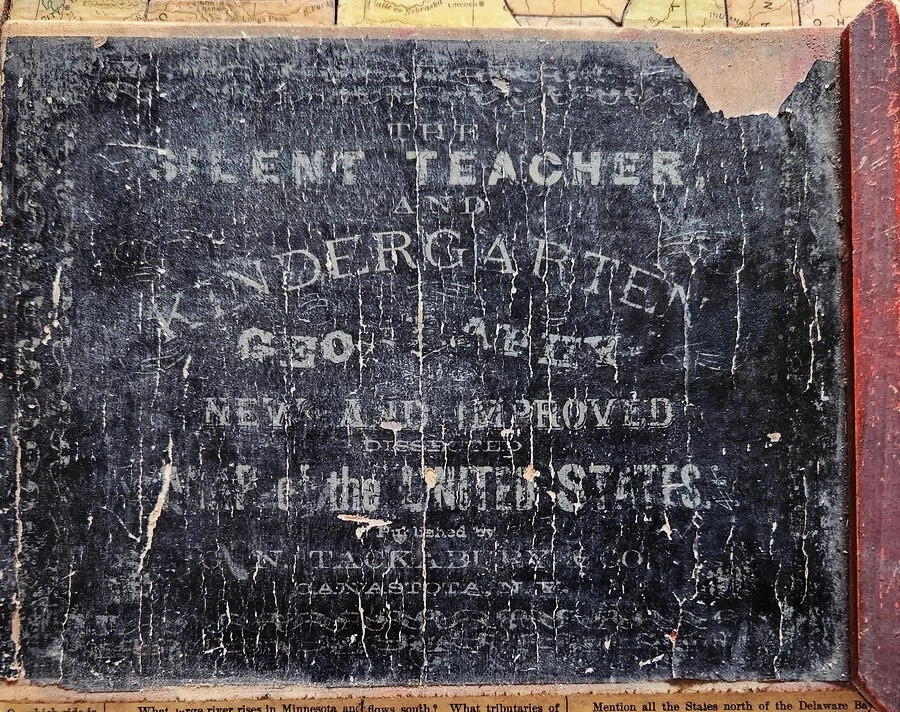 Longs Peak
LINCOLN
THE
SILENT TEACHER,
AND
KINDERGARTEN
GEOGRAPHY
NEW AND IMPROVED
DISSECTED
MAP of the UNITED STATES.
Published by
G. N. TACKABURY & CO
CANASTOTA, N. Y.
What large river rises in Minnesota and flows south? What tributaries of
Mention all the States north of the Delaware Bay